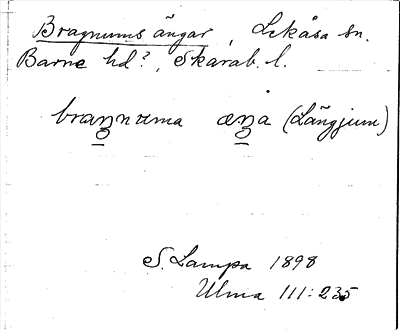 Bragnums ängar, Lekåsa sn.
Barne hd?, Skarab. l.
braŋnɷma æŋa (Långjum)
S. Lampa 1898
Ulma III:235